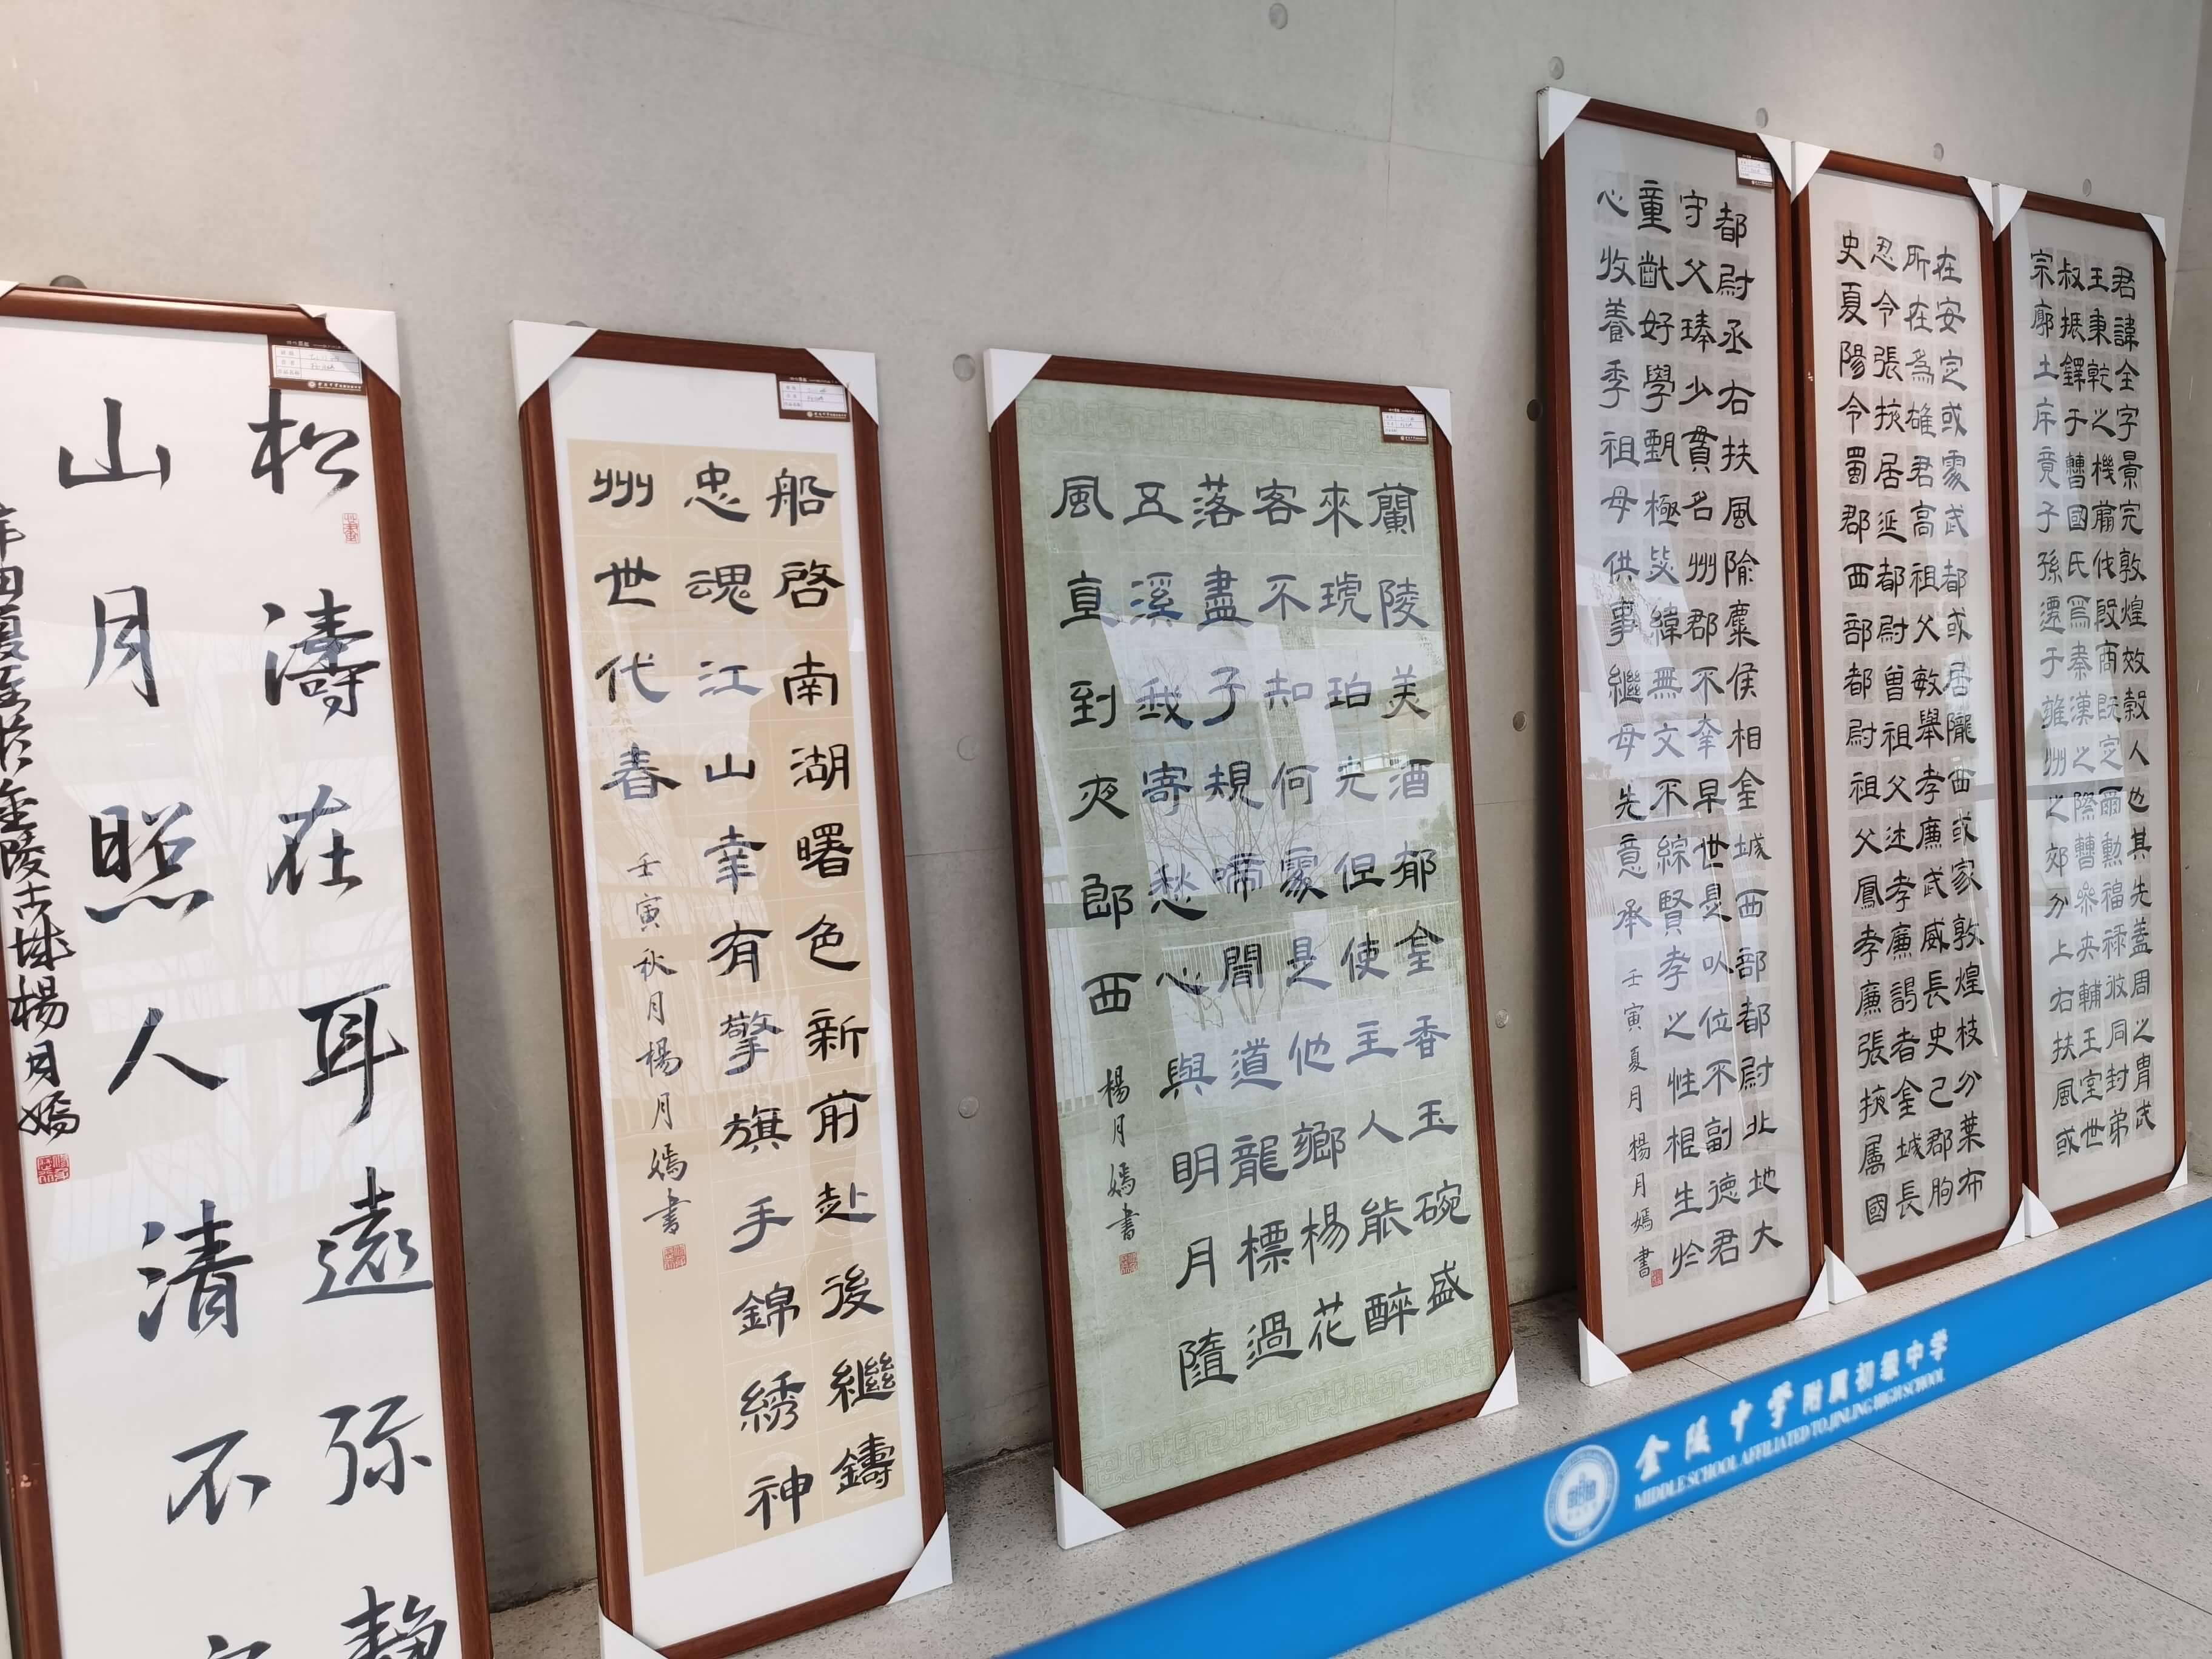 松濤在耳遠弥静
山月照人清不
金陵古城楊月嫣
船啓南湖曙色新前赴後繼鑄
忠魂江山幸有擎旗手錦綉神
州世代春
壬寅秋月楊月嫣書
蘭陵美酒郁金香玉碗盛
來琥珀光但使主人能醉
客不知何處是他鄉楊花
落盡子規啼聞道龍標過
五溪我寄愁心與明月隨
風直到夜郎西
楊月嫣書
君諱全字景完敦煌效穀人也其先蓋周之胄武
王秉乾之機翦伐殷商既定爾勳福祿攸同封弟
叔振鐸于曹國氏焉秦漢之際曹參夾輔王室世
宗廓土斥竟子孫遷于雍州之郊分上右扶風或
在安定或處武都或居隴西或家敦煌枝分葉布
所在爲雄君高祖父敏舉孝廉武威長史巴郡朐
忍令張掖居延都尉曾祖父述孝廉謁者金城長
史夏陽令蜀郡西部都尉祖父鳳孝廉張掖屬國
都尉丞右扶風隃麋侯相金城西部都尉北地大
守父琫少貫名州郡不幸早世是以位不副德君
童齔好學甄極毖緯無文不綜賢孝之性根生於
心收養季祖母供事繼母先意承
壬寅夏月楊月嫣書
金陵中学附属初级中学
MIDDLE SCHOOL AFFILIATED TO JINLING HIGH SCHOOL